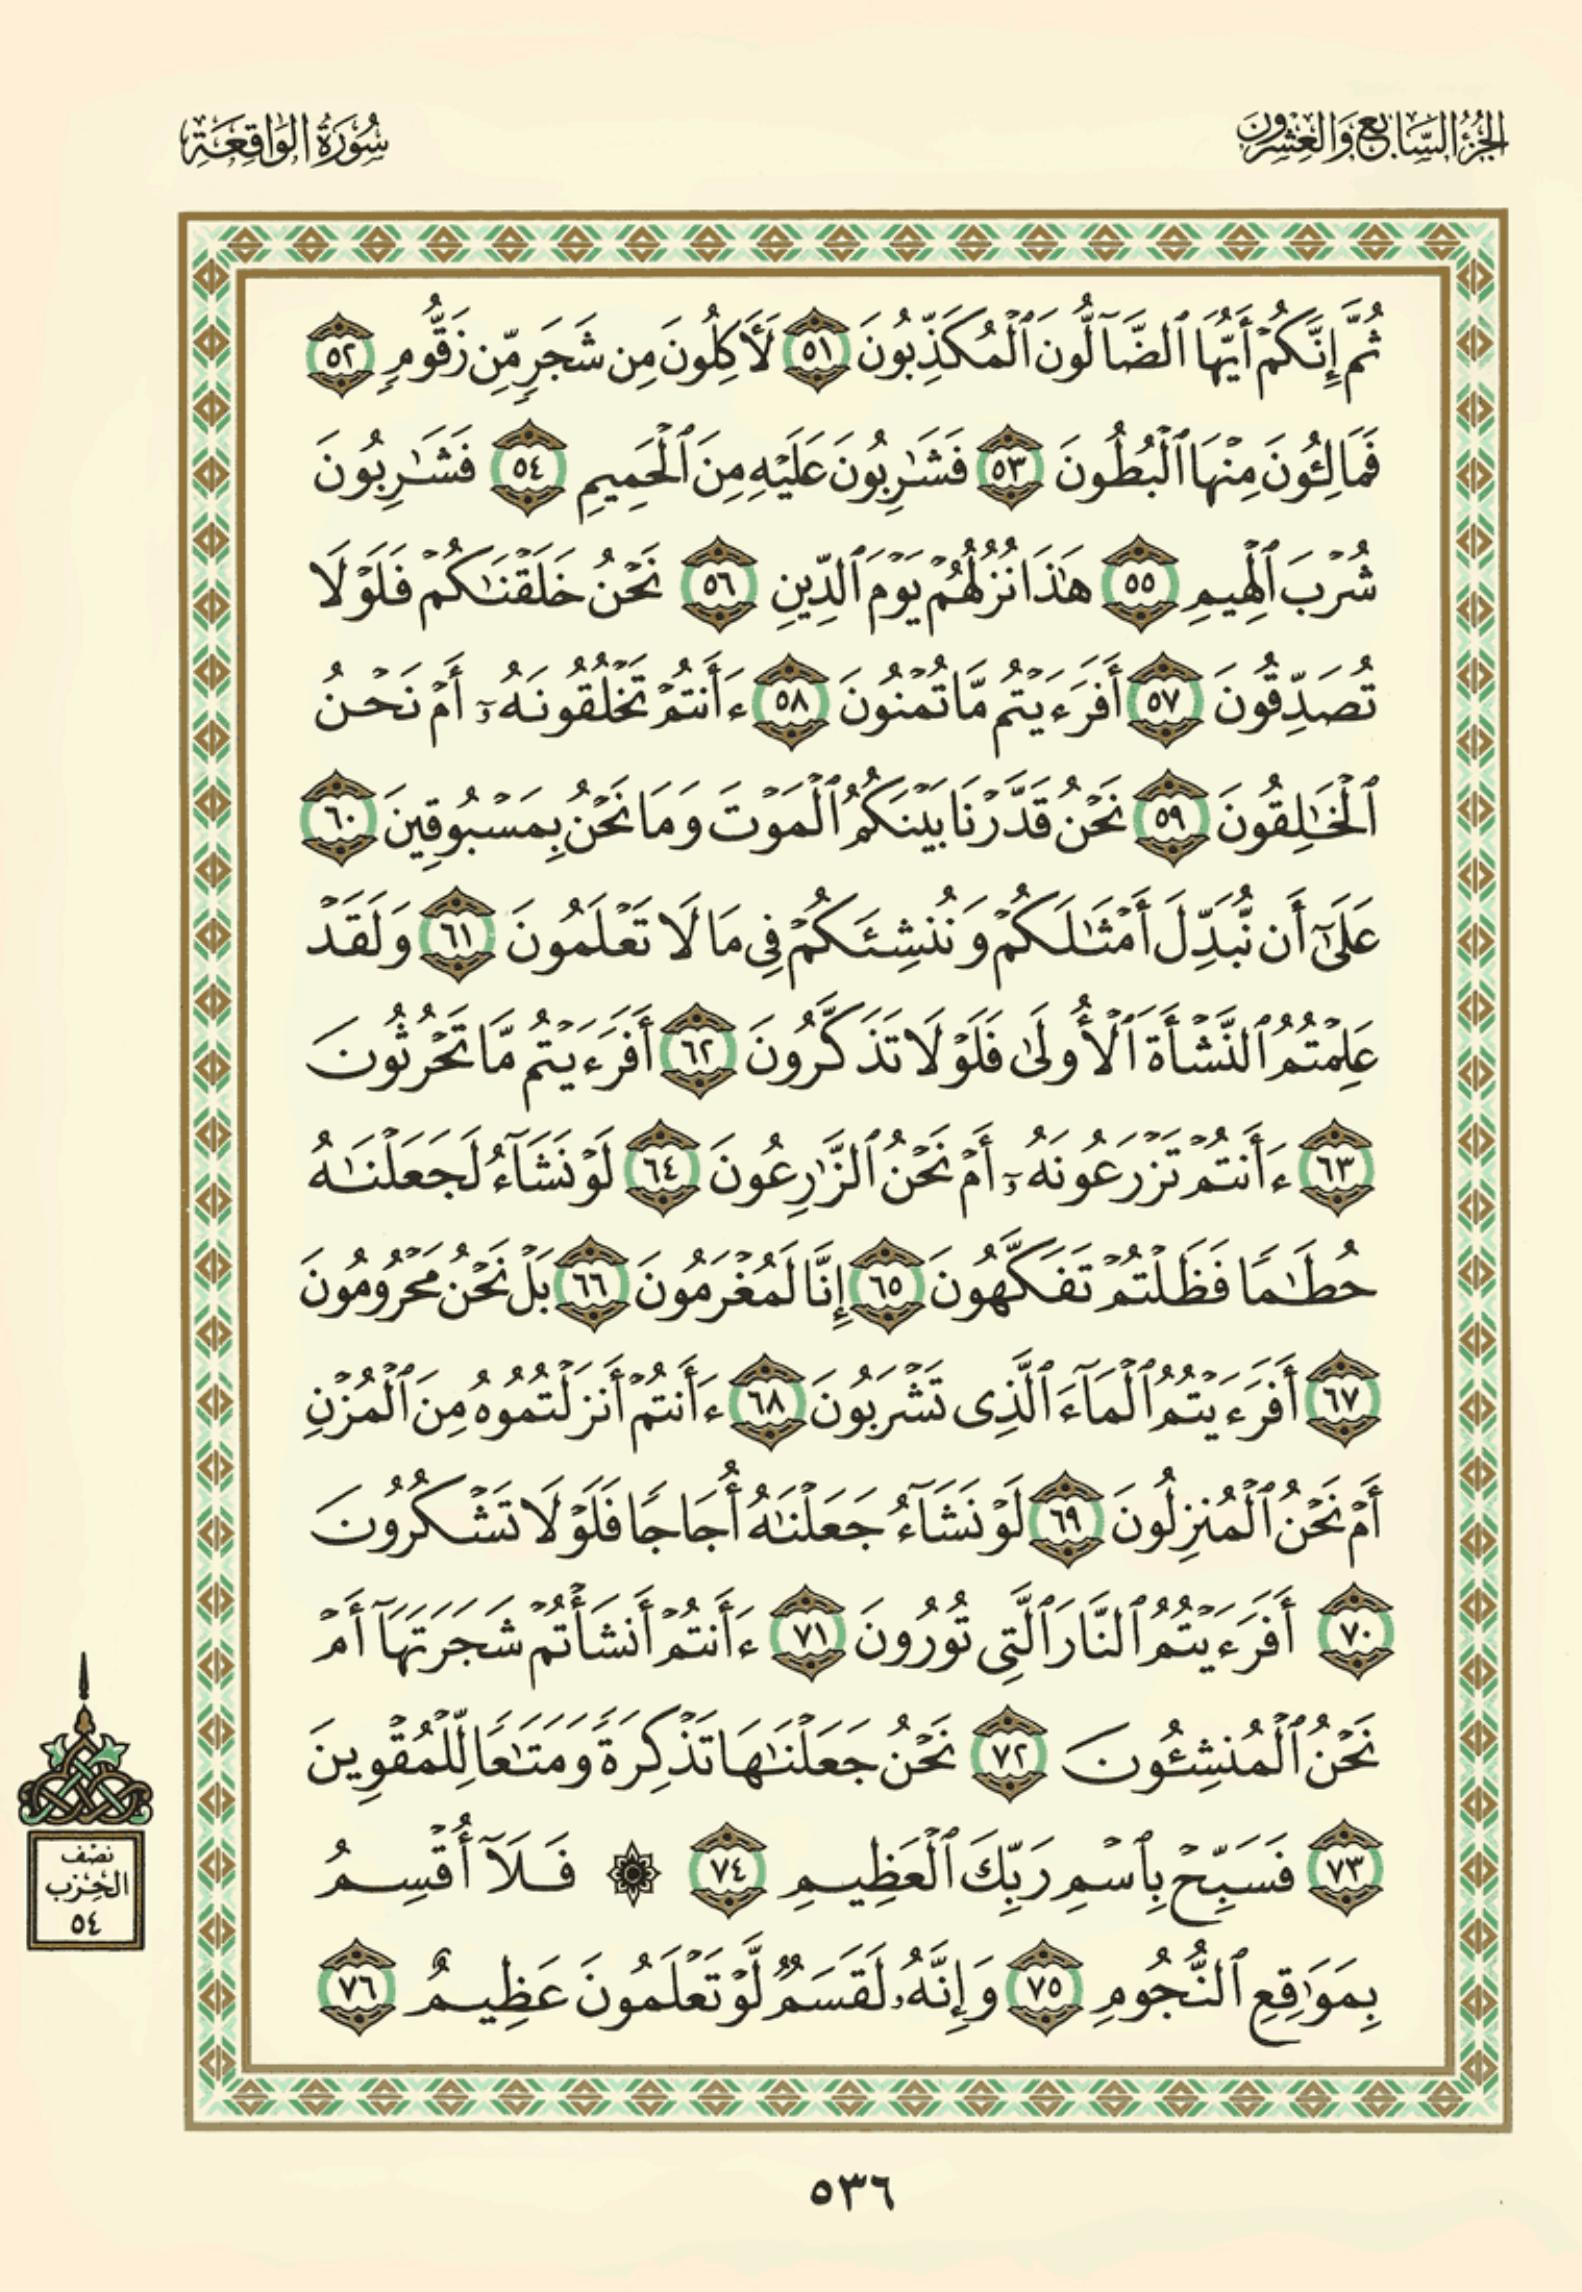 الجُزْءُ السَّابِعُ وَالعِشْرُونَ
سُورَةُ الوَاقِعَةِ
ثُمَّ إِنَّكُمْ أَيُّهَا ٱلضَّآلُّونَ ٱلْمُكَذِّبُونَ ٥١ لَأَكِلُونَ مِن شَجَرٍ مِّن زَقُّومٍ ٥٢
فَمَالِـُٔونَ مِنْهَا ٱلْبُطُونَ ٥٣ فَشَـٰرِبُونَ عَلَيْهِ مِنَ ٱلْحَمِيمِ ٥٤ فَشَـٰرِبُونَ
شُرْبَ ٱلْهِيمِ ٥٥ هَـٰذَا نُزُلُهُمْ يَوْمَ ٱلدِّينِ ٥٦ نَحْنُ خَلَقْنَـٰكُمْ فَلَوْلَا
تُصَدِّقُونَ ٥٧ أَفَرَءَيْتُم مَّا تُمْنُونَ ٥٨ ءَأَنتُمْ تَخْلُقُونَهُۥٓ أَمْ نَحْنُ
ٱلْخَـٰلِقُونَ ٥٩ نَحْنُ قَدَّرْنَا بَيْنَكُمُ ٱلْمَوْتَ وَمَا نَحْنُ بِمَسْبُوقِينَ ٦٠
عَلَىٰٓ أَن نُّبَدِّلَ أَمْثَـٰلَكُمْ وَنُنشِئَكُمْ فِى مَا لَا تَعْلَمُونَ ٦١ وَلَقَدْ
عَلِمْتُمُ ٱلنَّشْأَةَ ٱلْأُولَىٰ فَلَوْلَا تَذَكَّرُونَ ٦٢ أَفَرَءَيْتُم مَّا تَحْرُثُونَ
٦٣ ءَأَنتُمْ تَزْرَعُونَهُۥٓ أَمْ نَحْنُ ٱلزَّٰرِعُونَ ٦٤ لَوْ نَشَآءُ لَجَعَلْنَـٰهُ
حُطَـٰمًا فَظَلْتُمْ تَفَكَّهُونَ ٦٥ إِنَّا لَمُغْرَمُونَ ٦٦ بَلْ نَحْنُ مَحْرُومُونَ
٦٧ أَفَرَءَيْتُمُ ٱلْمَآءَ ٱلَّذِى تَشْرَبُونَ ٦٨ ءَأَنتُمْ أَنزَلْتُمُوهُ مِنَ ٱلْمُزْنِ
أَمْ نَحْنُ ٱلْمُنزِلُونَ ٦٩ لَوْ نَشَآءُ جَعَلْنَـٰهُ أُجَاجًا فَلَوْلَا تَشْكُرُونَ
٧٠ أَفَرَءَيْتُمُ ٱلنَّارَ ٱلَّتِى تُورُونَ ٧١ ءَأَنتُمْ أَنشَأْتُمْ شَجَرَتَهَآ أَمْ
نَحْنُ ٱلْمُنشِـُٔونَ ٧٢ نَحْنُ جَعَلْنَـٰهَا تَذْكِرَةً وَمَتَـٰعًا لِّلْمُقْوِينَ
٧٣ فَسَبِّحْ بِٱسْمِ رَبِّكَ ٱلْعَظِيمِ ٧٤ ۞ فَلَآ أُقْسِمُ
بِمَوَٰقِعِ ٱلنُّجُومِ ٧٥ وَإِنَّهُۥ لَقَسَمٌ لَّوْ تَعْلَمُونَ عَظِيمٌ ٧٦
نصف
الحزب
٥٤
٥٣٦